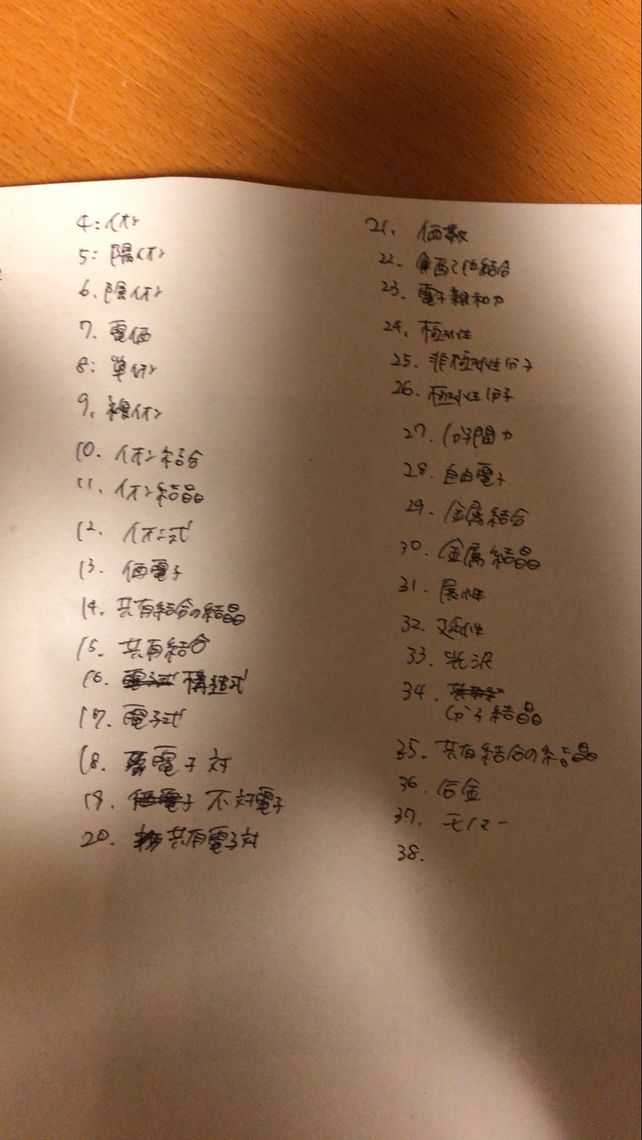 4: イオン
5: 陽イオン
6. 陰イオン
7. 電価
8: 単イオン
9. 複イオン
10. イオン結合
11. イオン結晶
12. イオン式
13. 価電子
14. 共有結合の結晶
15. 共有結合
16. 電子式 構造式
17. 電子式
18. 電子対
19. 価電子 不対電子
20. 共有電子対
21. 価数
22. 配位結合
23. 電子親和力
24. 極性
25. 非極性分子
26. 極性分子
27. 分子間力
28. 自由電子
29. 金属結合
30. 金属結晶
31. 展性
32. 延性
33. 光沢
34.
分子結晶
35. 共有結合の結晶
36. 合金
37. モノマー
38.